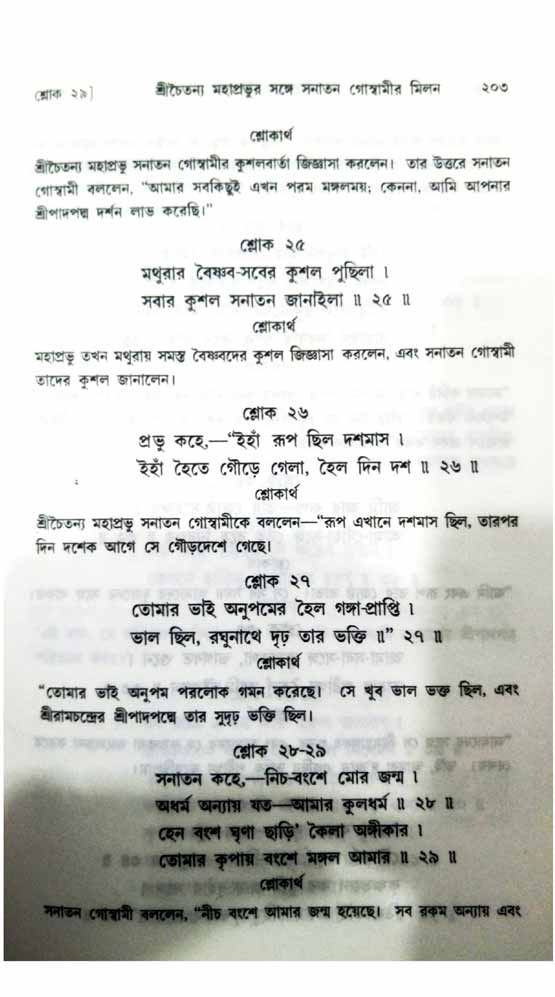 শ্লোক ২৯] শ্রীচৈতন্য মহাপ্রভুর সঙ্গে সনাতন গোস্বামীর মিলন ২০৩
শ্লোকার্থ
শ্রীচৈতন্য মহাপ্রভু সনাতন গোস্বামীর কুশলবার্তা জিজ্ঞাসা করলেন। তার উত্তরে সনাতন
গোস্বামী বললেন, “আমার সবকিছুই এখন পরম মঙ্গলময়; কেননা, আমি আপনার
শ্রীপাদপদ্ম দর্শন লাভ করেছি।”
শ্লোক ২৫
মথুরার বৈষ্ণব-সবের কুশল পুছিলা ।
সবার কুশল সনাতন জানাইলা ॥ ২৫ ॥
শ্লোকার্থ
মহাপ্রভু তখন মথুরায় সমস্ত বৈষ্ণবদের কুশল জিজ্ঞাসা করলেন, এবং সনাতন গোস্বামী
তাদের কুশল জানালেন।
শ্লোক ২৬
প্রভু কহে,—“ইহাঁ রূপ ছিল দশমাস ।
ইহাঁ হৈতে গৌড়ে গেলা, হৈল দিন দশ ॥ ২৬ ॥
শ্লোকার্থ
শ্রীচৈতন্য মহাপ্রভু সনাতন গোস্বামীকে বললেন—“রূপ এখানে দশমাস ছিল, তারপর
দিন দশেক আগে সে গৌড়দেশে গেছে।
শ্লোক ২৭
তোমার ভাই অনুপমের হৈল গঙ্গা-প্রাপ্তি ।
ভাল ছিল, রঘুনাথে দৃঢ় তার ভক্তি ॥” ২৭ ॥
শ্লোকার্থ
“তোমার ভাই অনুপম পরলোক গমন করেছে। সে খুব ভাল ভক্ত ছিল, এবং
শ্রীরামচন্দ্রের শ্রীপাদপদ্মে তার সুদৃঢ় ভক্তি ছিল।
শ্লোক ২৮-২৯
সনাতন কহে,—নিচ-বংশে মোর জন্ম ।
অধর্ম অন্যায় যত—আমার কুলধর্ম ॥ ২৮ ॥
হেন বংশ ঘৃণা ছাড়ি’ কৈলা অঙ্গীকার ।
তোমার কৃপায় বংশে মঙ্গল আমার ॥ ২৯ ॥
শ্লোকার্থ
সনাতন গোস্বামী বললেন, “নীচ বংশে আমার জন্ম হয়েছে। সব রকম অন্যায় এবং